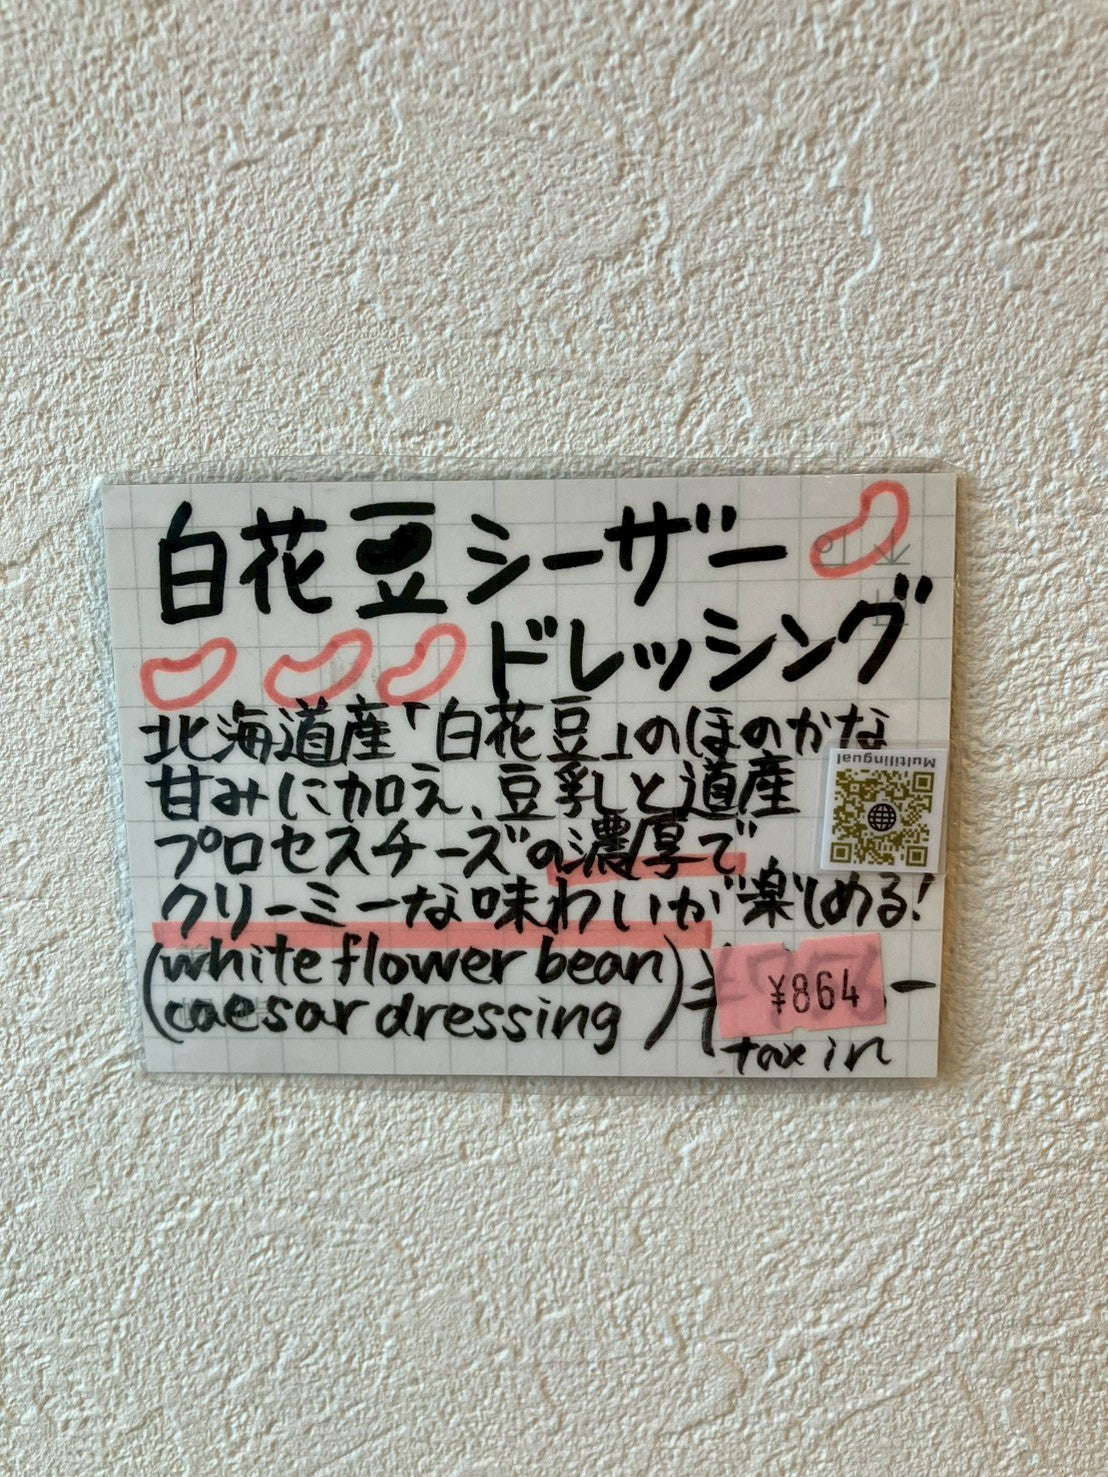 白花豆シーザー
ドレッシング
北海道産「白花豆」のほのかな
甘みに加え、豆乳と道産
プロセスチーズの濃厚で
クリーミーな味わいが楽しめる!
(white flower bean
caesar dressing)
¥864
tax in
Multilingual